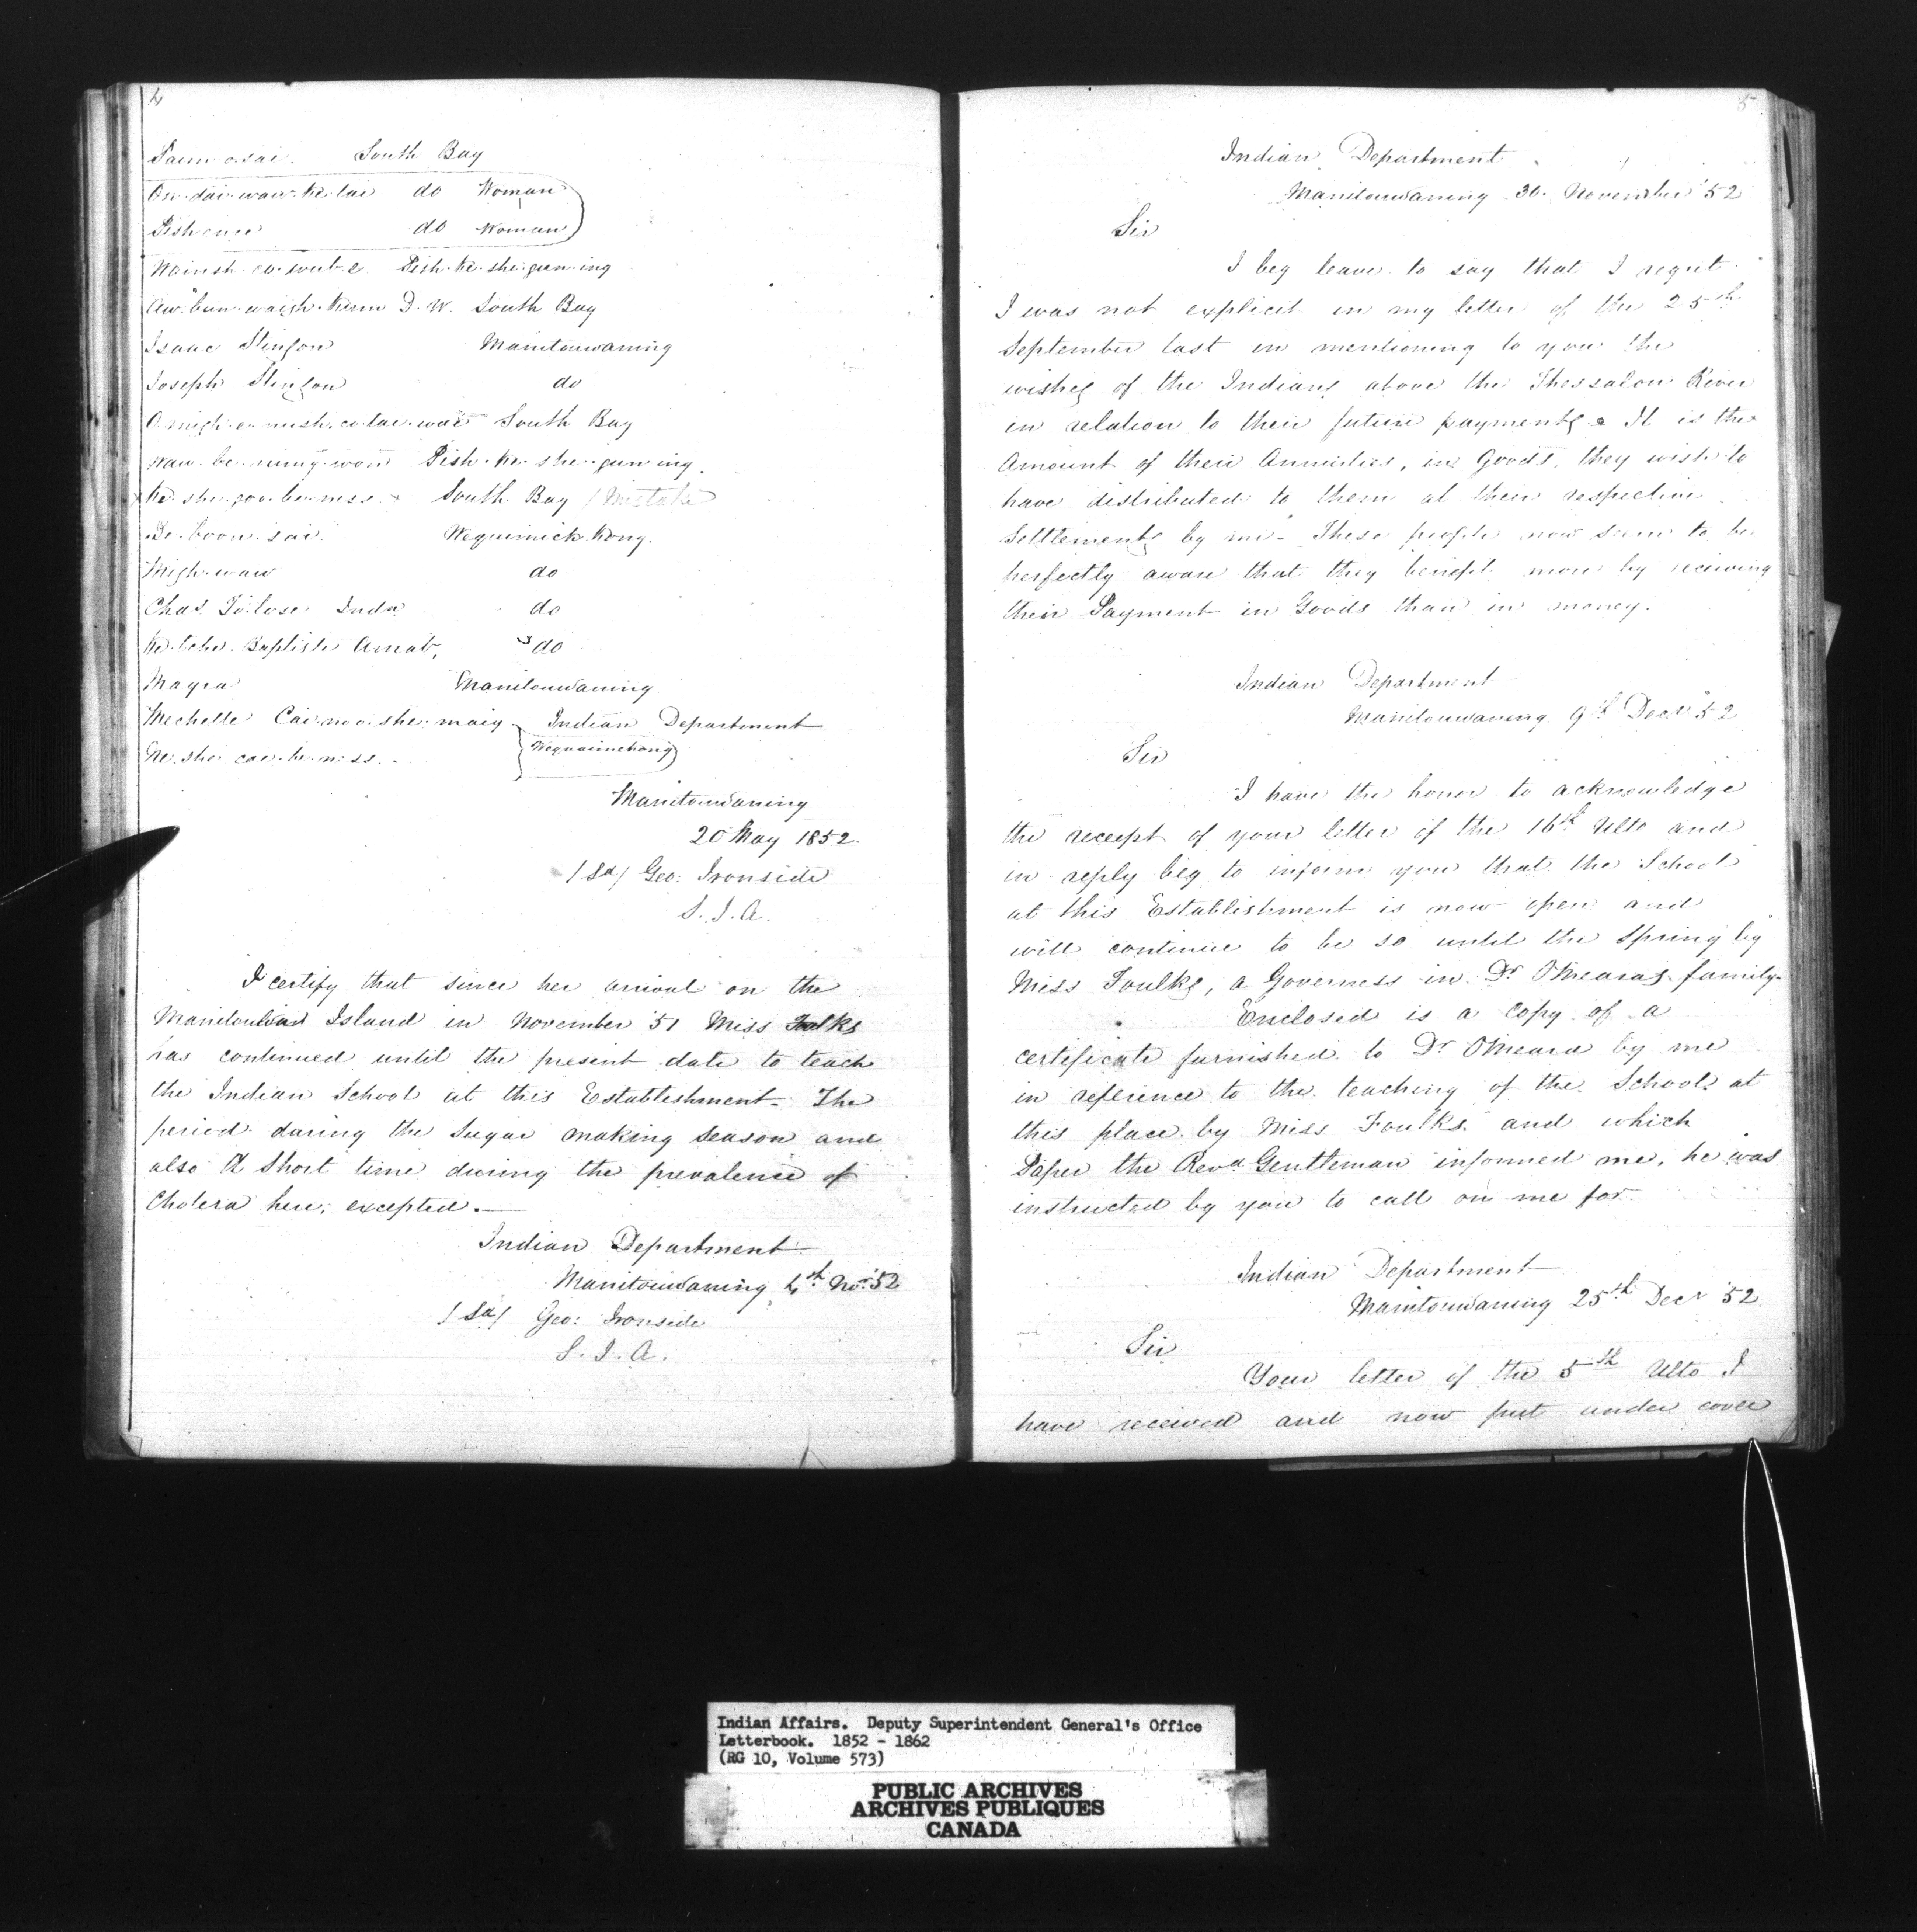 4
South Bay
do Woman
do Woman
Pish.ke.she.gun.ing
D. W. South Bay
Isaac Stinson Manitouwaning
Joseph Stinson do
South Bay
Pish.ke.she.gun.ing
South Bay / Mistake
do
Chas. do
Baptiste do
Manitouwaning
Indian Department
Manitouwaning
20 May 1852.
/Sd/ Geo: Ironside
S. I. A.
I certify that since her arrival on the
Island in November '51 Miss Foulks
has continued until the present date to teach
the Indian School at this Establishment. The
period during the Sugar making season and
also a short time during the prevalence of
Cholera here, excepted.—
Indian Department
Manitouwaning 4th Nov '52
/Sd/ Geo: Ironside
S. I. A.
5
Indian Department
Manitouwaning 30 November '52
Sir
I beg leave to say that I regret
I was not explicit in my letter of the 25th
September last in mentioning to you the
wishes of the Indians above the Thessalon River
in relation to their future payments. It is the
Amount of their Annuities, in Goods, they wish to
have distributed to them at their respective
Settlements by me. These people now seem to be
perfectly aware that they benefit more by receiving
their Payment in Goods than in money.
Indian Department
Manitouwaning 9th Decr 52
Sir
I have the honor to acknowledge
the receipt of your letter of the 16th Ulto and
in reply beg to inform you that the School
at this Establishment is now open and
will continue to be so until the Spring by
Miss Foulks, a Governess in Dr OMearas family.
Enclosed is a copy of a
certificate furnished to Dr OMeara by me
in reference to the teaching of the School at
this place by Miss Foulks and which
Paper the Revd Gentleman informed me, he was
instructed by you to call on me for.
Indian Department
Manitouwaning 25th Decr '52
Sir
Your letter of the 5th Ulto I
have received and now put under cover
Indian Affairs. Deputy Superintendent General's Office
Letterbook. 1852 - 1862
(RG 10, Volume 573)
PUBLIC ARCHIVES
ARCHIVES PUBLIQUES
CANADA